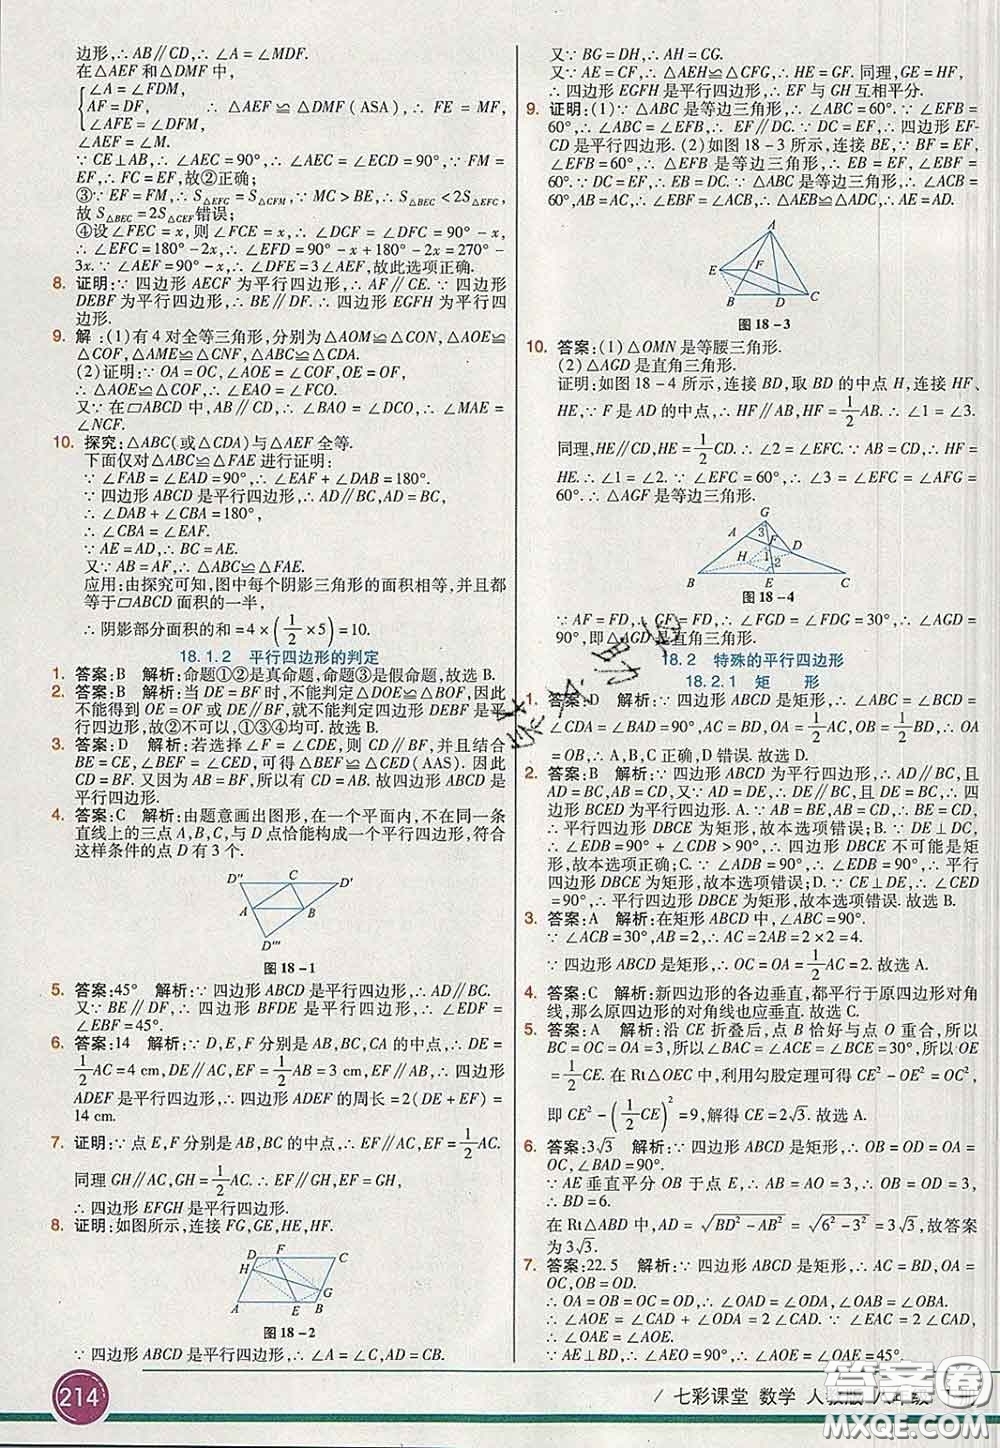 边形,∴AB∥CD,∴∠A=∠MDF.
在△AEF和△DMF中,
∠A=∠FDM,
AF=DF, ∴△AEF≌△DMF(ASA),∴FE=MF,
∠AFE=∠DFM,
∠AEF=∠M.
∵CE⊥AB,∴∠AEC=90°,∴∠AEC=∠ECD=90°,∵FM=
EF,∴FC=EF,故②正确;
③∵EF=FM,∴S△EFC=S△CFM,∵MC>BE,∴S△BEC<2S△EFC,
故S△BEC=2S△CEF错误;
④设∠FEC=x,则∠FCE=x,∴∠DCF=∠DFC=90°-x,
∴∠EFC=180°-2x,∴∠EFD=90°-x+180°-2x=270°-
3x.∵∠AEF=90°-x,∴∠DFE=3∠AEF,故此选项正确.
8. 证明:∵四边形AECF为平行四边形,∴AF∥CE.∵四边形
DEBF为平行四边形,∴BE∥DF.∴四边形EGFH为平行四
边形.
9. 解:(1)有4对全等三角形,分别为△AOM≌△CON,△AOE≌
△COF,△AME≌△CNF,△ABC≌△CDA.
(2)证明:∵OA=OC,∠AOE=∠COF,OE=OF,
∴△AOE≌△COF,∴∠EAO=∠FCO.
又∵在▱ABCD中,AB∥CD,∴∠BAO=∠DCO,∴∠MAE=
∠NCF.
10. 探究:△ABC(或△CDA)与△AEF全等.
下面仅对△ABC≌△FAE进行证明:
∵∠FAB=∠EAD=90°,∴∠EAF+∠DAB=180°.
∵四边形ABCD是平行四边形,∴AD∥BC,AD=BC,
∴∠DAB+∠CBA=180°,
∴∠CBA=∠EAF.
∵AE=AD,∴BC=AE.
又∵AB=AF,∴△ABC≌△FAE.
应用:由探究可知,图中每个阴影三角形的面积相等,并且都
等于▱ABCD面积的一半,
∴阴影部分面积的和=4×(1/2×5)=10.
18.1.2 平行四边形的判定
1. 答案:B 解析:命题①②是真命题,命题③是假命题,故选B.
2. 答案:B 解析:当DE=BF时,不能判定△DOE≌△BOF,因此
不能得到OE=OF或DE∥BF,就不能判定四边形DEBF是平
行四边形,故②不可以,①③④均可.故选B.
3. 答案:D 解析:若选择∠F=∠CDE,则CD∥AF,并且结合
BE=CE,∠BEF=∠CED,可得△BEF≌△CED(AAS).因此
CD=BF.又因为AB=BF,所以有CD=AB.故四边形ABCD是
平行四边形.
4. 答案:C 解析:由题意画出图形,在一个平面内,不在同一条
直线上的三点A,B,C,与D点恰能构成一个平行四边形,符合
这样条件的点D有3个.
D″ C D′
A B
D‴
图18-1
5. 答案:45° 解析:∵四边形ABCD是平行四边形,AD∥BC.
又∵BE∥DF,∴四边形BFDE是平行四边形,∴∠EDF=
∠EBF=45°.
6. 答案:14 解析:∵D,E,F分别是AB,BC,CA的中点,∴DE=
1/2AC=4 cm,DE∥AC,EF=1/2AB=3 cm,EF∥AB,∴四边形
ADEF是平行四边形,∴四边形ADEF的周长=2(DE+EF)=
14 cm.
7. 证明:∵点E,F分别是AB,BC的中点,∴EF∥AC,EF=1/2AC.
同理GH∥AC,GH=1/2AC.∴EF∥GH,EF=GH,
∴四边形EFGH是平行四边形.
8. 证明:如图所示,连接FG,GE,HE,HF.
D F C
H G
A E B
图18-2
∵四边形ABCD是平行四边形,∴∠A=∠C,AD=CB.
214
又∵BG=DH,∴AH=CG.
又∵AE=CF,∴△AEH≌△CFG,∴HE=GF.同理,GE=HF,
∴四边形EGFH是平行四边形,∴EF与GH互相平分.
9. 证明:(1)∵△ABC是等边三角形,∴∠ABC=60°.∵∠EFB=
60°,∴∠ABC=∠EFB,∴EF∥DC.∵DC=EF,∴四边形EF-
CD是平行四边形.(2)如图18-3所示,连接BE,∵BF=EF,
∠EFB=60°,∴△EFB是等边三角形,∴EB=EF,∠EBF=
60°.∵DC=EF,∴EB=DC.∵△ABC是等边三角形,∴∠ACB=
60°,AB=AC,∴∠EBF=∠ACB,∴△AEB≌△ADC,∴AE=AD.
A
E F
B D C
图18-3
10. 答案:(1)△OMN是等腰三角形.
(2)△AGD是直角三角形.
证明:如图18-4所示,连接BD,取BD的中点H,连接HF、
HE,∵F是AD的中点,∴HF∥AB,HF=1/2AB.∴∠1=∠3.
同理,HE∥CD,HE=1/2CD.∴∠2=∠EFC.∵AB=CD,∴HF=
HE.∴∠1=∠2.∵∠EFC=60°,∴∠3=∠EFC=∠AFG=
60°.∴△AGF是等边三角形.
G
A 3 F D
H 1 2
B E C
图18-4
∵AF=FD,∴GF=FD.∴∠FGD=∠FDG=30°.∴∠AGD=
90°,即△AGD是直角三角形.
18.2 特殊的平行四边形
18.2.1 矩 形
1. 答案:D 解析:∵四边形ABCD是矩形,∴∠ABC=∠BCD
=∠CDA=∠BAD=90°,AC=BD,OA=1/2AC,OB=1/2BD,∴OA
=OB,∴A,B,C正确,D错误.故选D.
2. 答案:B 解析:∵四边形ABCD为平行四边形,∴AD∥BC,且
AD=BC.又∵AD=DE,∴DE∥BC,且DE=BC,∴四边
形BCED为平行四边形.A.∵AB=BE,AB=CD,∴BE=CD,
∴平行四边形DBCE为矩形,故本选项错误;B.∵DE⊥DC,
∴∠EDB=90°+∠CDB>90°,∴四边形DBCE不可能是矩
形,故本选项正确;C.∵∠ADB=90°,∴∠EDB=90°,∴平行
四边形DBCE为矩形,故本选项错误;D.∵CE⊥DE,∴∠CED
=90°,∴平行四边形DBCE为矩形,故本选项错误.故选B.
3. 答案:A 解析:在矩形ABCD中,∠ABC=90°.
∵∠ACB=30°,AB=2,∴AC=2AB=2×2=4.
∵四边形ABCD是矩形,∴OC=OA=1/2AC=2.故选A.
4. 答案:C 解析:新四边形的各边垂直,都平行于原四边形对角
线,那么原四边形的对角线也应垂直.故选C.
5. 答案:A 解析:沿CE折叠后,点B恰好与点O重合,所以
BC=OC=3,所以∠BAC=∠ACE=∠BCE=30°,所以OE=
1/2CE.在Rt△OEC中,利用勾股定理可得CE²-OE²=OC²,
即CE²-(1/2CE)²=9,解得CE=2√3.故选A.
6. 答案:3√3 解析:∵四边形ABCD是矩形,∴OB=OD=OA=
OC;∠BAD=90°.
∵AE垂直平分OB于点E,∴AB=AO,∴OA=AB=OB=3,
∴BD=6.
在Rt△ABD中,AD=√(BD²-AB²)=√(6²-3²)=3√3,故答案
为3√3.
7. 答案:22.5 解析:∵四边形ABCD是矩形,∴AC=BD,OA=
OC,OB=OD.
∴OA=OB=OC=OD,∴∠OAD=∠ODA,∠OAB=∠OBA,
∴∠AOE=∠OAD+∠ODA=2∠OAD.∵∠EAC=2∠CAD,
∴∠OAE=∠AOE.
∵AE⊥BD,∴∠AEO=90°,∴∠AOE=∠OAE=45°,
/ 七彩课堂 数学 人教版 八年级
答案圈
MXQE.COM